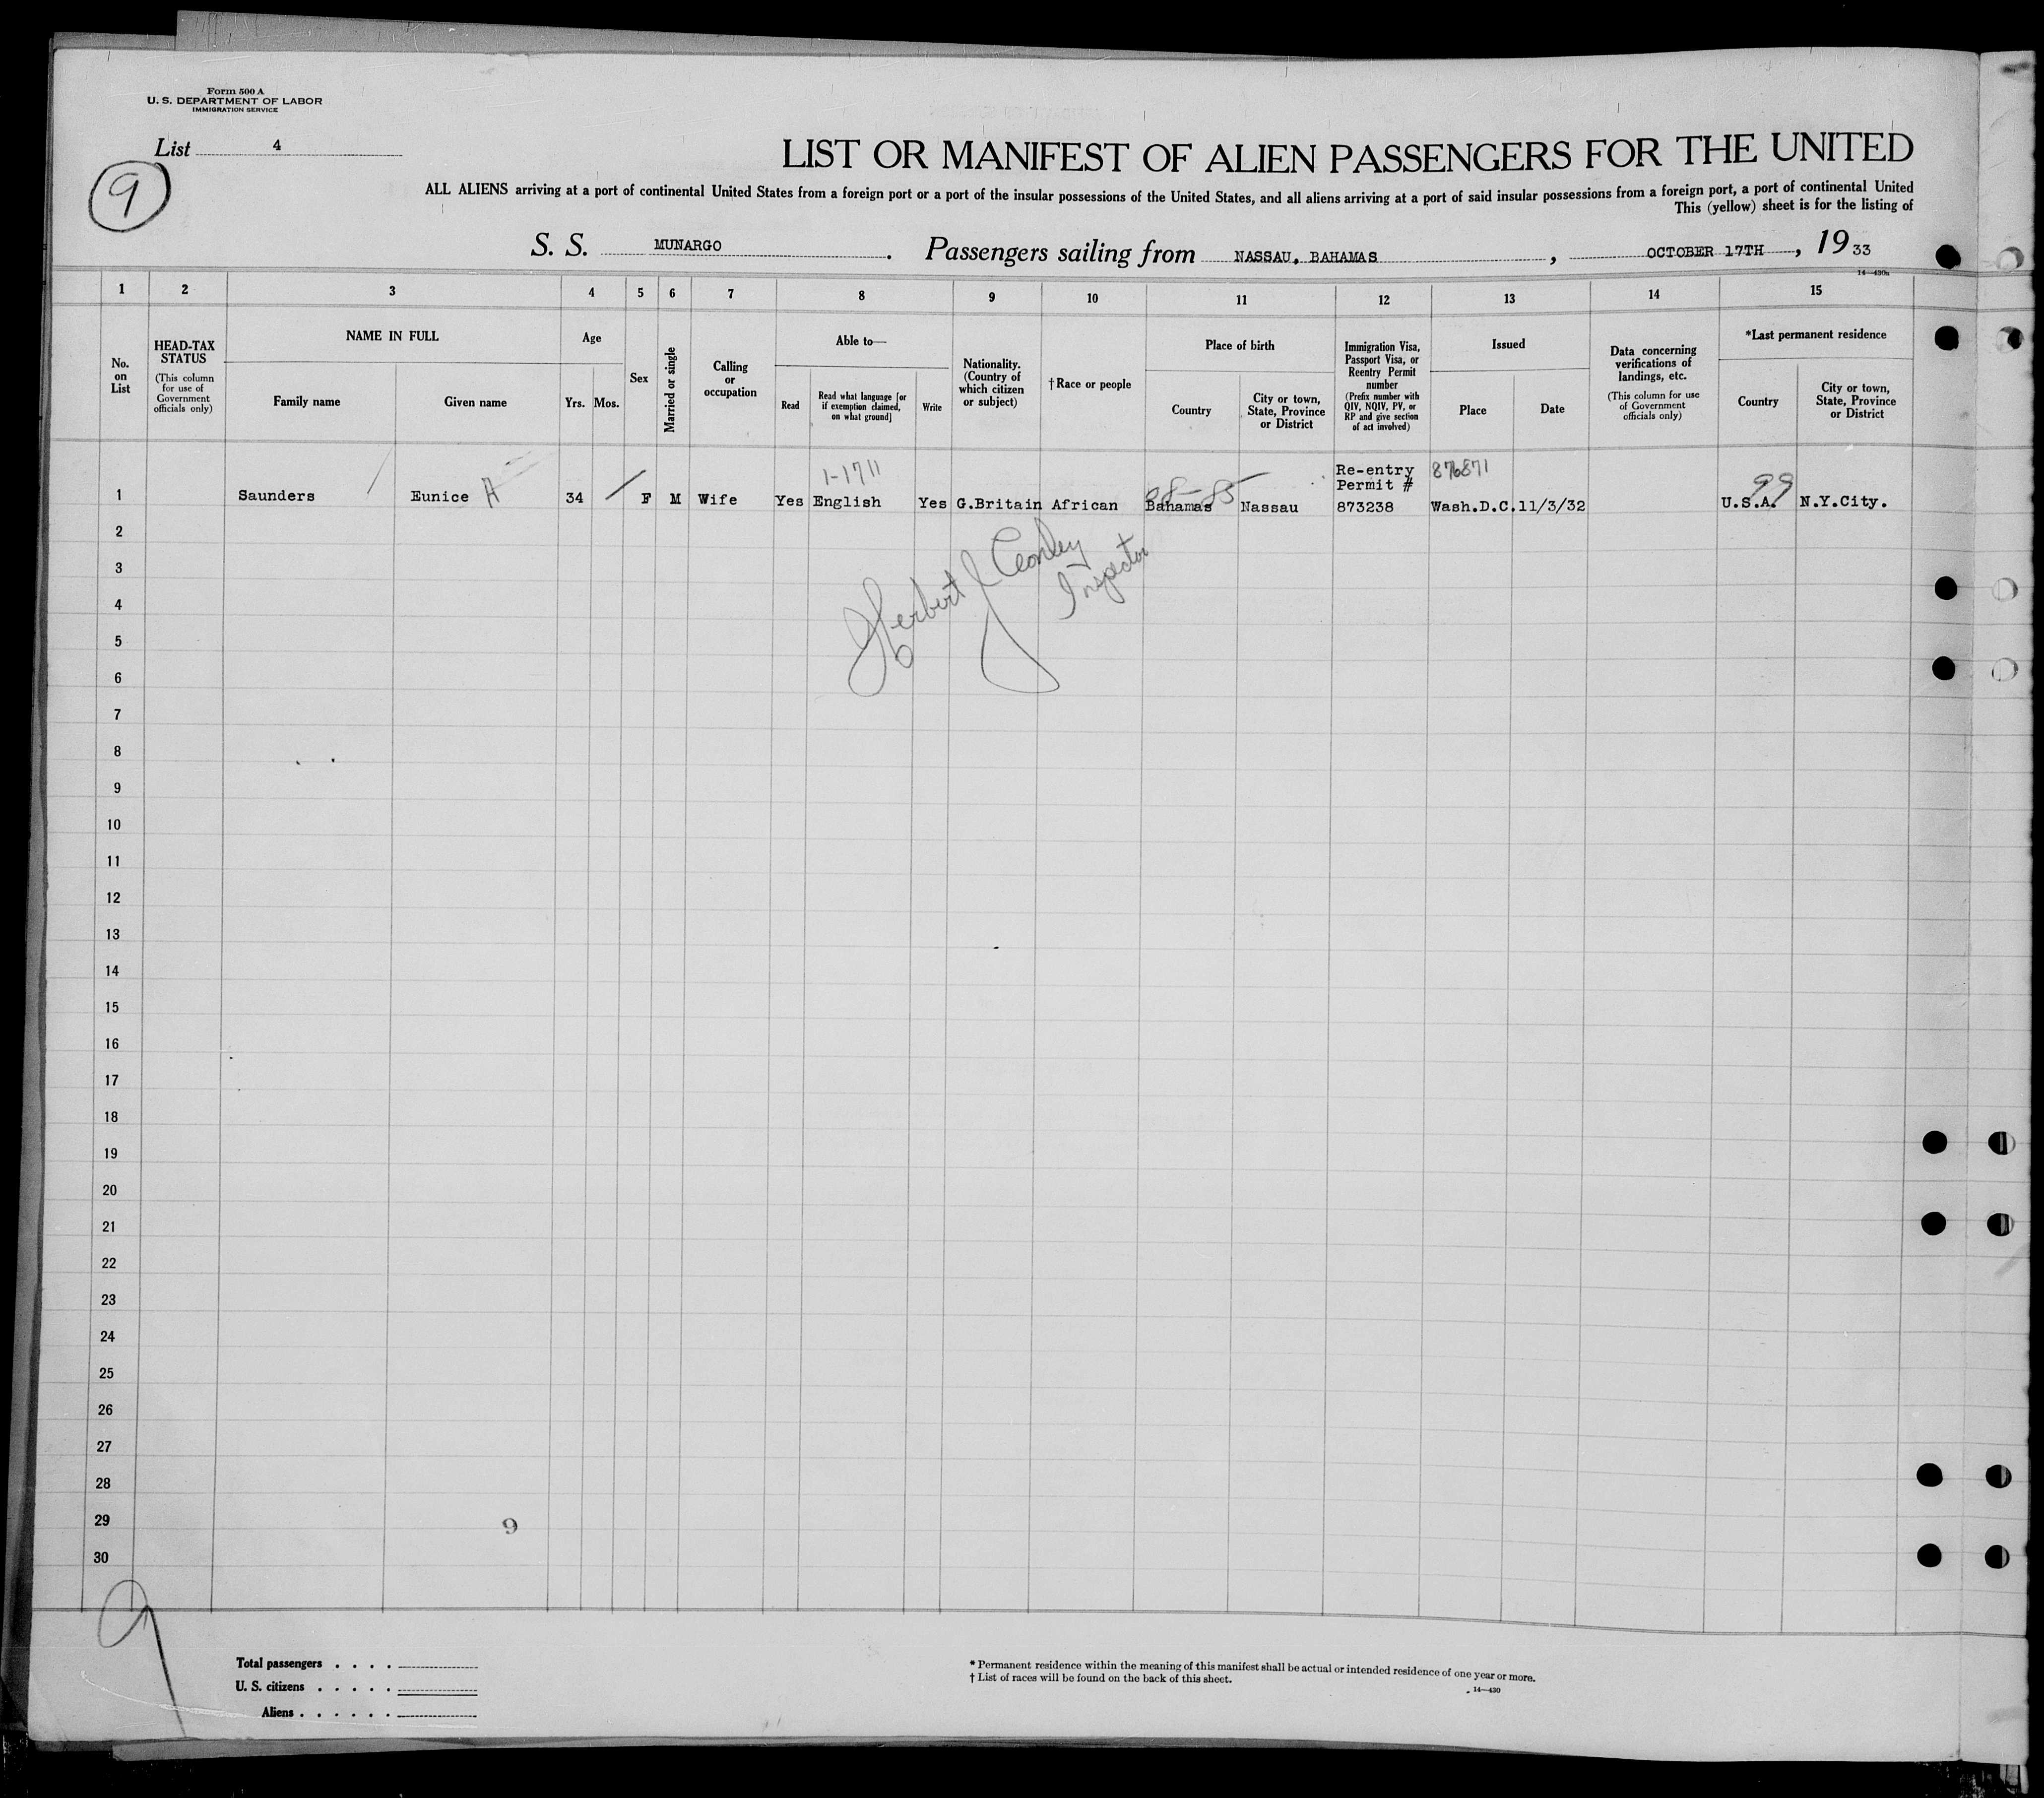 Form 500 A
U. S. DEPARTMENT OF LABOR
IMMIGRATION SERVICE
List 4
9
LIST OR MANIFEST OF ALIEN PASSENGERS FOR THE UNITED
ALL ALIENS arriving at a port of continental United States from a foreign port or a port of the insular possessions of the United States, and all aliens arriving at a port of said insular possessions from a foreign port, a port of continental United
This (yellow) sheet is for the listing of
S. S. MUNARGO. Passengers sailing from NASSAU, BAHAMAS, OCTOBER 17TH, 1933
14—430a
1 2 3 4 5 6 7 8 9 10 11 12 13 14 15
No. on List
HEAD-TAX STATUS
(This column for use of Government officials only)
NAME IN FULL
Family name
Given name
Age
Yrs. Mos.
Sex
Married or single
Calling or occupation
Able to—
Read
Read what language [or if exemption claimed, on what ground]
Write
Nationality. (Country of which citizen or subject)
†Race or people
Place of birth
Country
City or town, State, Province or District
Immigration Visa, Passport Visa, or Reentry Permit number
(Prefix number with QIV, NQIV, PV, or RP and give section of act involved)
Issued
Place
Date
Data concerning verifications of landings, etc.
(This column for use of Government officials only)
*Last permanent residence
Country
City or town, State, Province or District
1-1711
Re-entry 876871
Permit #
99
1 Saunders Eunice A 34 F M Wife Yes English Yes G.Britain African Bahamas Nassau 873238 Wash.D.C. 11/3/32 U.S.A. N.Y.City.
2
3
4
5
6
7
8
9
10
11
12
13
14
15
16
17
18
19
20
21
22
23
24
25
26
27
28
29
30
Herbert J
Inspector
9
9
Total passengers . . . .
U. S. citizens . . . . .
Aliens . . . . . .
* Permanent residence within the meaning of this manifest shall be actual or intended residence of one year or more.
† List of races will be found on the back of this sheet.
14—430